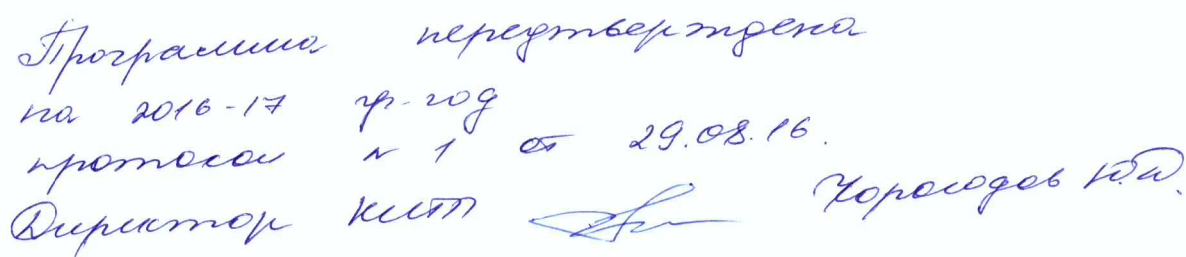 Программа переутверждена
на 2016-17 уч. год
протокол № 1 от 29.08.16.
Директор КИТП Хорогодов Ю.Ю.